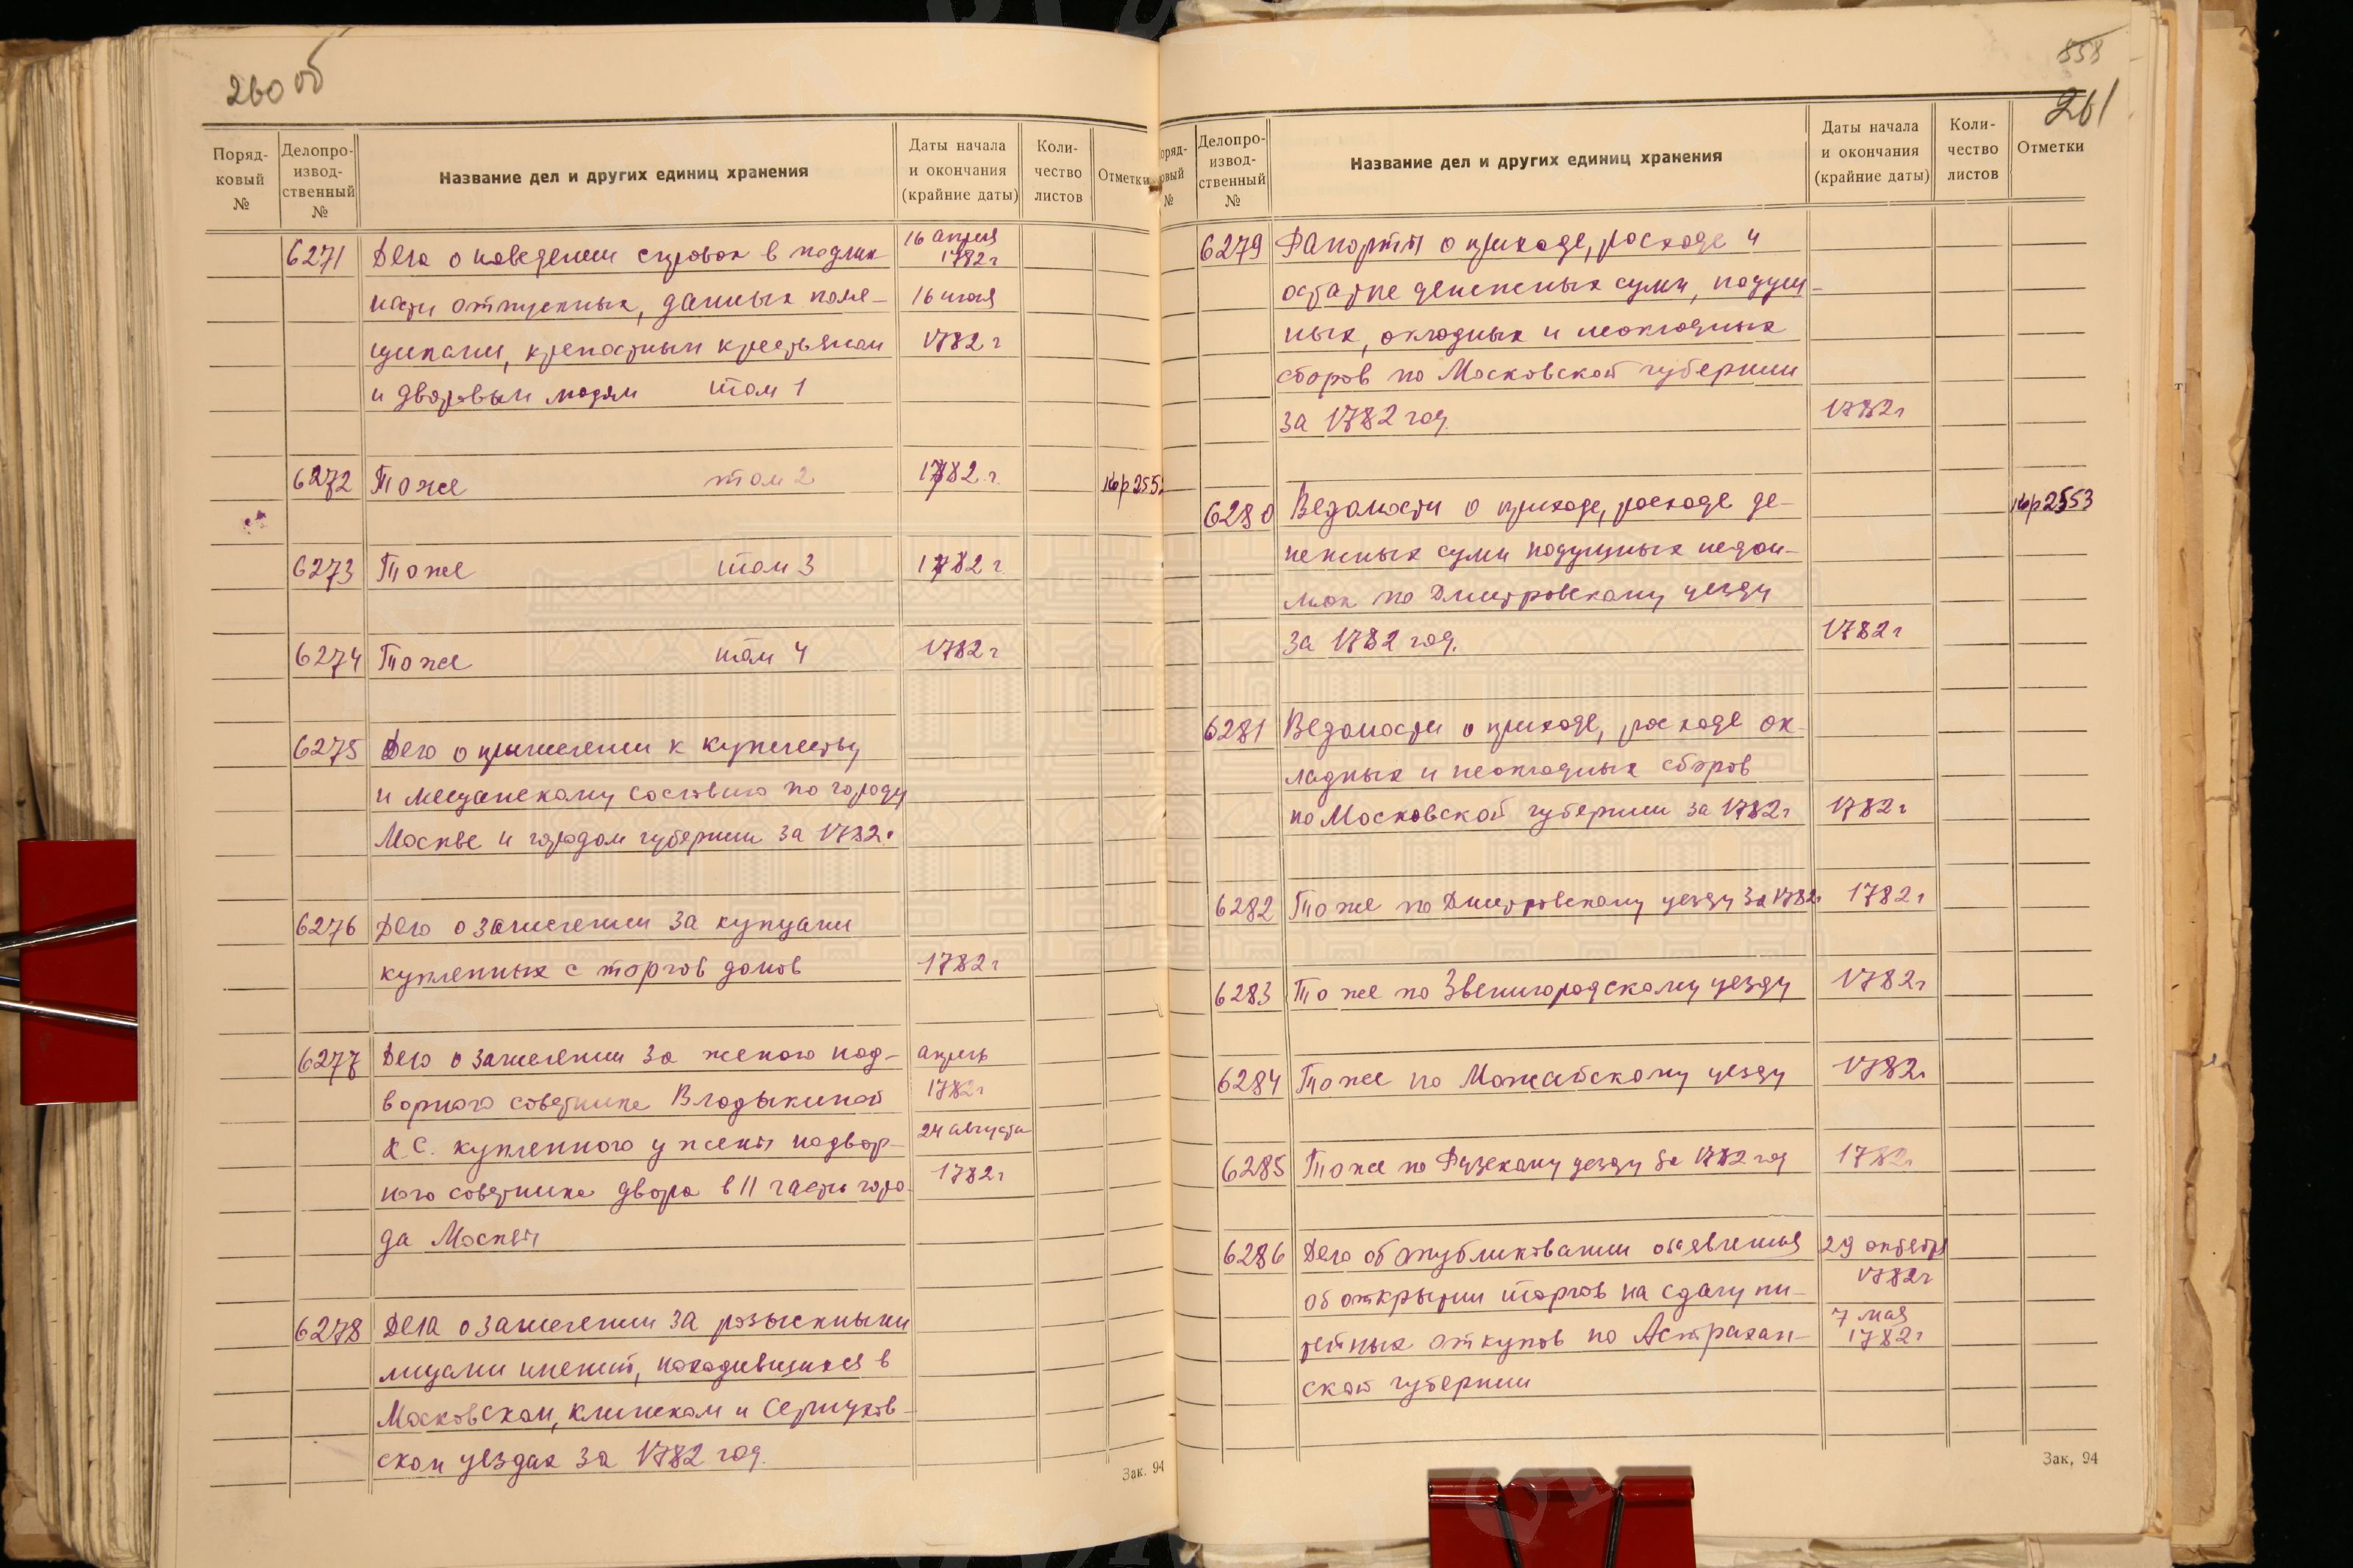 260 об
Поряд-
ковый
№
Делопро-
извод-
ственный
№
Название дел и других единиц хранения
Даты начала
и окончания
(крайние даты)
Коли-
чество
листов
Отметки
6271 Дела о наведении справок в подлин
16 апреля
1782 г
ности отпускных, данных поме-
16 июля
щиками, крепостным крестьянам
1782 г
и дворовым людям том 1
6272 Тоже том 2 1782 г. кор 255
6273 Тоже том 3 1782 г.
6274 Тоже том 4 1782 г
6275 Дело о причислении к купечеству
и мещанскому сословию по городу
Москве и городам губернии за 1782 г
6276 Дело о зачислении за купцами
купленных с торгов домов 1782 г
6277 Дело о зачислении за женою над-
апрель
ворного советника Владыкиной
1782 г
С. купленного у жены надвор-
24 августа
ного советника двора в 11 части горо-
1782 г
да Москвы
6278 Дела о зачислении за разыскными
лицами имений, находившихся в
Московском, Клинском и Серпухов-
ском уездах за 1782 год.
Зак. 94
858
261
оряд-
овый
№
Делопро-
извод-
ственный
№
Название дел и других единиц хранения
Даты начала
и окончания
(крайние даты)
Коли-
чество
листов
Отметки
6279 Рапорты о приходе, расходе и
остатке денежных сумм, подуш-
ных, окладных и неокладных
сборов по Московской губернии
за 1782 год. 1782 г
6280 Ведомости о приходе, расходе де- кор 2553
нежных сумм подушных недои-
мок по Дмитровскому уезду
за 1782 год. 1782 г
6281 Ведомости о приходе, расходе ок-
ладных и неокладных сборов
по Московской губернии за 1782 г 1782 г
6282 Тоже по Дмитровскому уезду за 1782 г 1782 г
6283 Тоже по Звенигородскому уезду 1782 г
6284 Тоже по Можайскому уезду 1782 г
6285 Тоже по Рузскому уезду за 1782 год 1782 г
6286 Дело об опубликовании объявления 29 октября
1782 г
об открытии торгов на сдачу пи-
7 мая
1782 г
тейных откупов по Астрахан-
ской губернии
Зак, 94